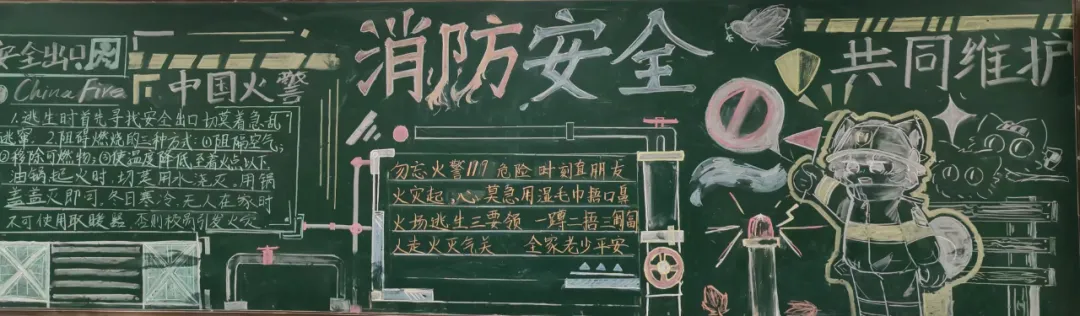 安全出口
China Fire
中国火警
1.逃生时首先寻找安全出口切莫着急乱
逃窜 2.阻碍燃烧的三种方式:①阻隔空气;
②移除可燃物;③使温度降低至着火点以下
油锅起火时,切莫用水浇灭,用锅
盖盖灭即可,冬日寒冷,无人在家时
不可使用取暖器,否则极易引发火灾
消防安全
勿忘火警119 危险时刻真朋友
火灾起,心莫急用湿毛巾捂口鼻
火场逃生三要领 一蹲一捂三匍匐
人走火灭气关 全家老少平安
共同维护